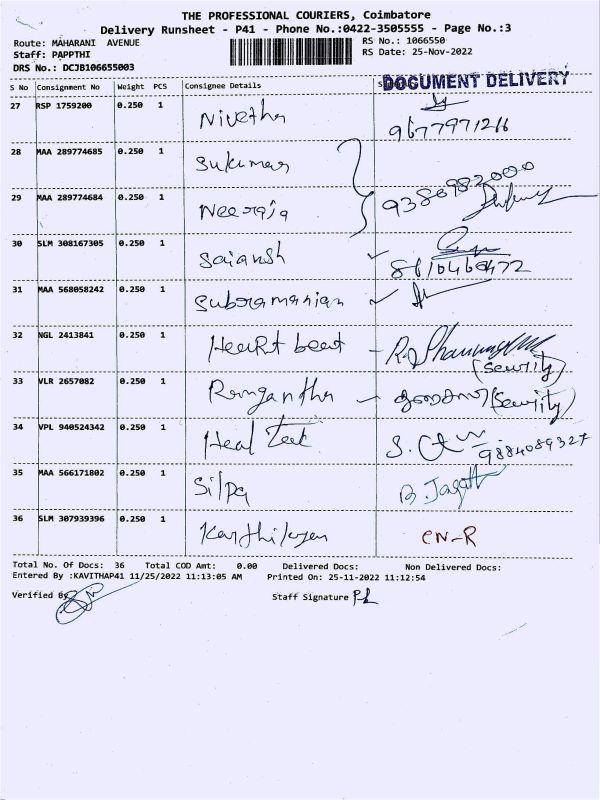 THE PROFESSIONAL COURIERS, Coimbatore
Delivery Runsheet - P41 - Phone No.:0422-3505555 - Page No.:3
Route: MAHARANI AVENUE
RS No.: 1066550
Staff: PAPPTHI
RS Date: 25-Nov-2022
DRS No.: DCJB106655003
DOCUMENT DELIVERY
S No Consignment No Weight PCS Consignee Details
27 RSP 1759200 0.250 1 Nivetha
9677971266
28 MAA 289774685 0.250 1 Sukumar
29 MAA 289774684 0.250 1 Neeraja 9380982000
30 SLM 308167305 0.250 1 Saiansh
31 MAA 568058242 0.250 1 Subramanian
32 NGL 2413841 0.250 1 Heart beat
(Security)
33 VLR 2657082 0.250 1 Ranganatha (Security)
34 VPL 940524342 0.250 1 Heal Teet
9884089327
35 MAA 566171802 0.250 1 Silpa B. Jagath
36 SLM 307939396 0.250 1 Karthikeyan CN-R
Total No. Of Docs: 36 Total COD Amt: 0.00 Delivered Docs: Non Delivered Docs:
Entered By :KAVITHAP41 11/25/2022 11:13:05 AM Printed On: 25-11-2022 11:12:54
Verified By Staff Signature